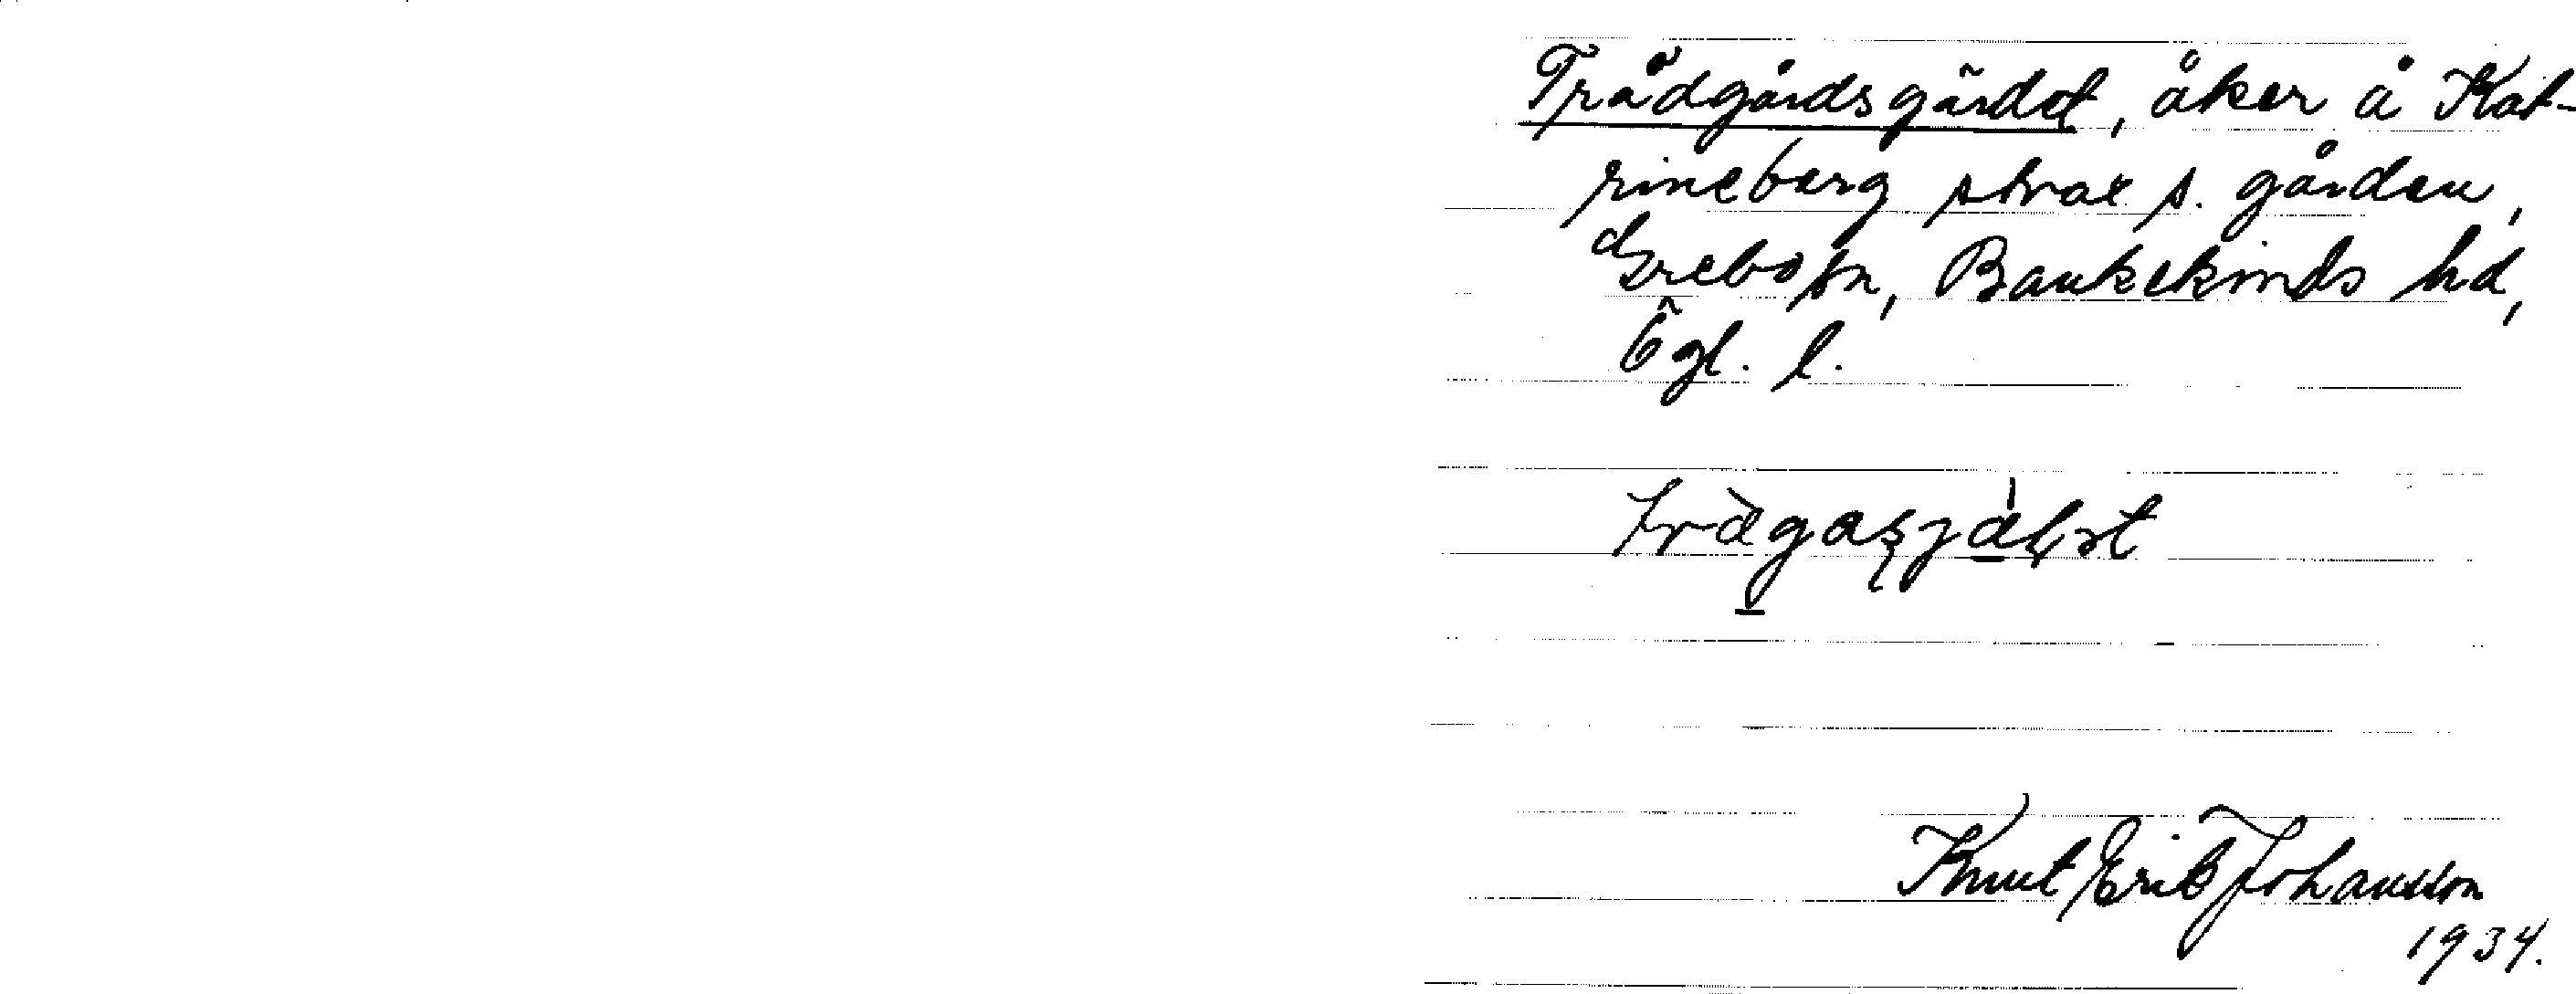 Trädgårdsgärdet, åker å Kat-
rineberg strax s. gården,
Grebo sn, Bankekinds hd,
Ögl. l.
Knut Erik Johansson
1934.